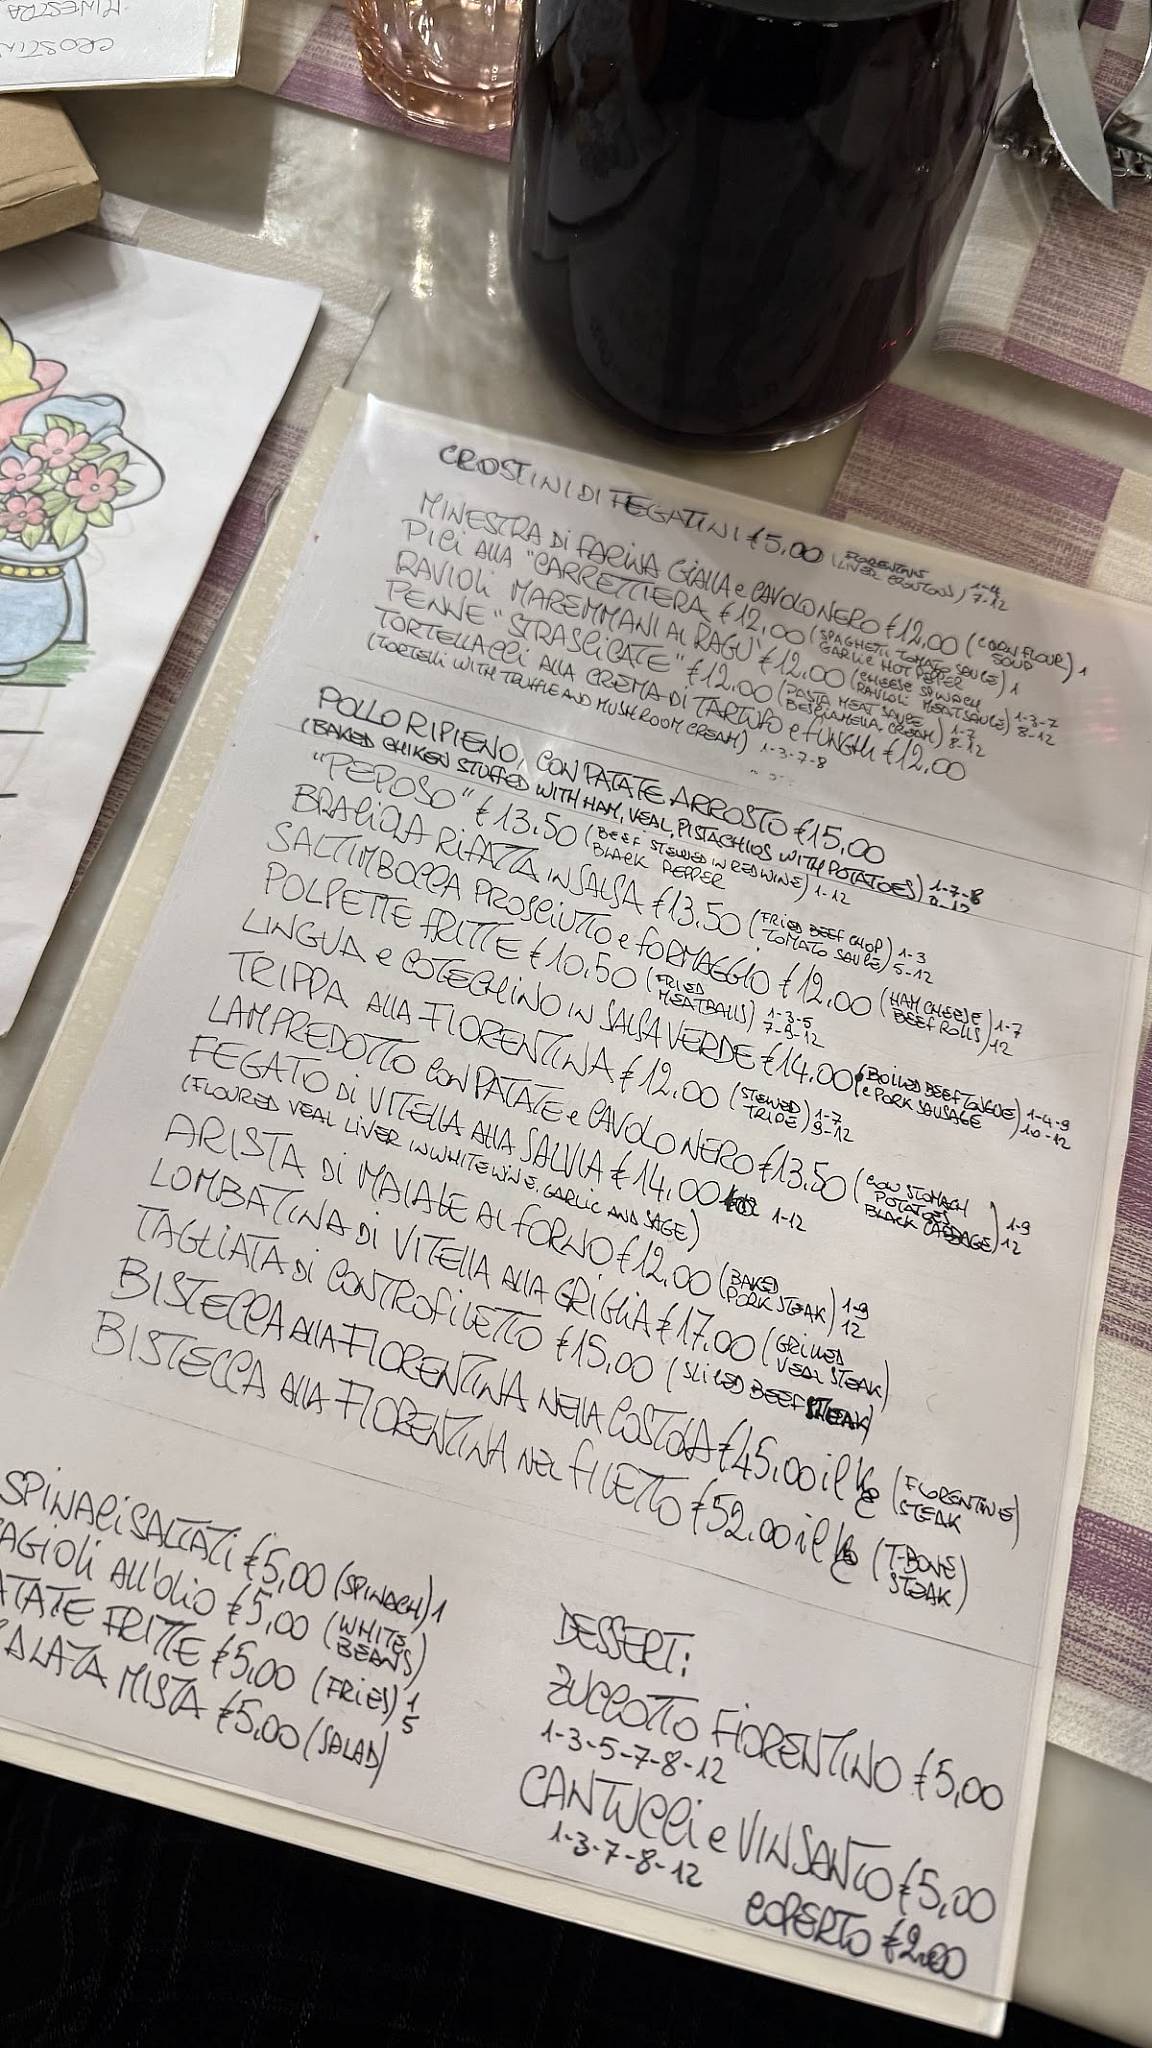 CROSTINI DI FEGATINI €5,00 (FIORENTINE LIVER CROUTONS) 1-4 7-12
MINESTRA DI FARINA GIALLA e CAVOLO NERO €12,00 (CORN FLOUR SOUP) 1
PICI ALLA "CARRETTIERA €12,00 (SPAGHETTI TOMATO SAUCE GARLIC HOT PEPPER) 1
RAVIOLI MAREMMANI AL RAGU' €12,00 (CHEESE SPINACH RAVIOLI MEAT SAUCE) 1-3-7 8-12
PENNE "STRASCICATE" €12,00 (PASTA MEAT SAUCE BESCIAMELLA CREAM) 1-7 8-12
TORTELLACCI ALLA CREMA DI TARTUFO e FUNGHI €12,00
(TORTELLI WITH TRUFFLE AND MUSHROOM CREAM) 1-3-7-8
POLLO RIPIENO, CON PATATE ARROSTO €15,00
(BAKED CHIKEN STUFFED WITH HAM, VEAL, PISTACHIOS WITH POTATOES) 1-7-8 9-12
"PEPOSO" €13.50 (BEEF STEWED IN RED WINE) BLACK PEPPER 1-12
BRACIOLA RIFATTA IN SALSA €13.50 (FRIED BEEF CHOP TOMATO SAUCE) 1-3 5-12
SALTIMBOCCA PROSCIUTTO e FORMAGGIO €12.00 (HAM CHEESE BEEF ROLLS) 1-7 12
POLPETTE FRITTE €10.50 (FRIED MEATBALLS) 1-3-5 7-9-12
LINGUA e COTECHINO IN SALSA VERDE €14.00 (BOILED BEEF TONGUE e PORK SAUSAGE) 1-4-9 10-12
TRIPPA ALLA FIORENTINA €12.00 (STEWED TRIPE) 1-7 9-12
LAMPREDOTTO CON PATATE e CAVOLO NERO €13.50 (COW STOMACH POTATOES BLACK CABBAGE) 1-9 12
FEGATO DI VITELLA ALLA SALVIA €14.00 1-12
(FLOURED VEAL LIVER IN WHITE WINE, GARLIC AND SAGE)
ARISTA DI MAIALE AL FORNO €12.00 (BAKED PORK STEAK) 1-9 12
LOMBATINA DI VITELLA ALLA GRIGLIA €17.00 (GRILLED VEAL STEAK)
TAGLIATA DI CONTROFILETTO €15,00 (SLICED BEEF STEAK)
BISTECCA ALLA FIORENTINA NELLA COSTOLA €45.00 il Kg (FIORENTINE STEAK)
BISTECCA ALLA FIORENTINA NEL FILETTO €52.00 il Kg (T-BONE STEAK)
SPINACI SALTATI €5,00 (SPINACH) 1
AGIOLI ALL'OLIO €5,00 (WHITE BEANS)
ATATE FRITTE €5,00 (FRIES) 1 5
ALATA MISTA €5,00 (SALAD)
DESSERT:
ZUCCOTTO FIORENTINO €5,00
1-3-5-7-8-12
CANTUCCI e VINSANTO €5,00
1-3-7-8-12
COPERTO €2.00
MINESTRA
CROSTIN